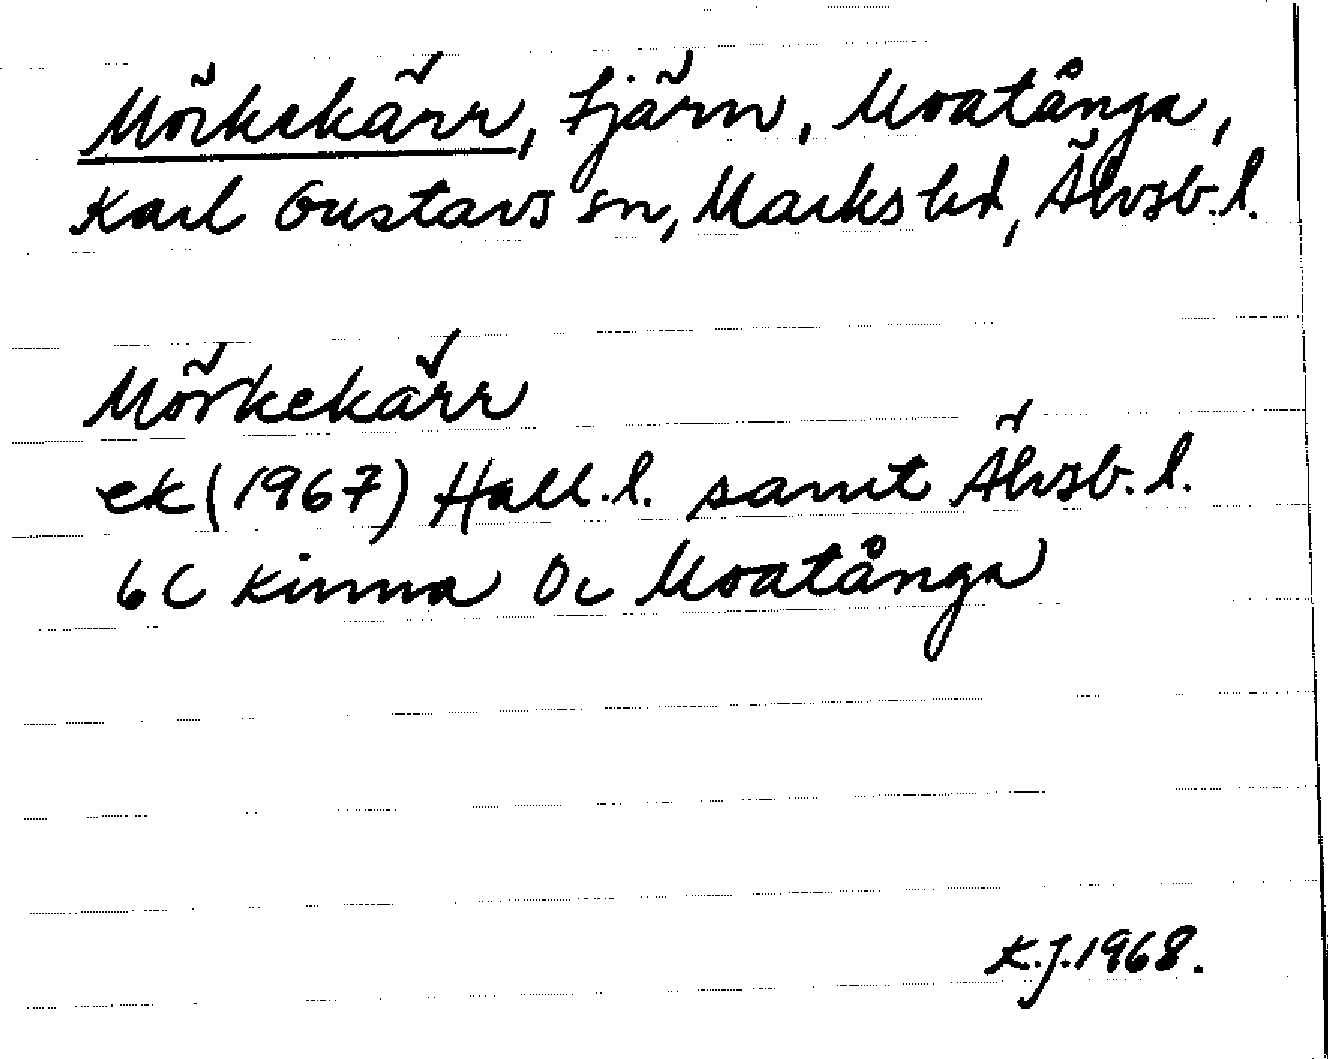 Mörkekärr, tjärn, Moatånga,
Karl Gustavs sn, Marks hd, Älvsb. l.
Mörkekärr
ek (1967) Hall. l. samt Älvsb. l.
6C Kinna 0c Moatånga
K.J. 1968.